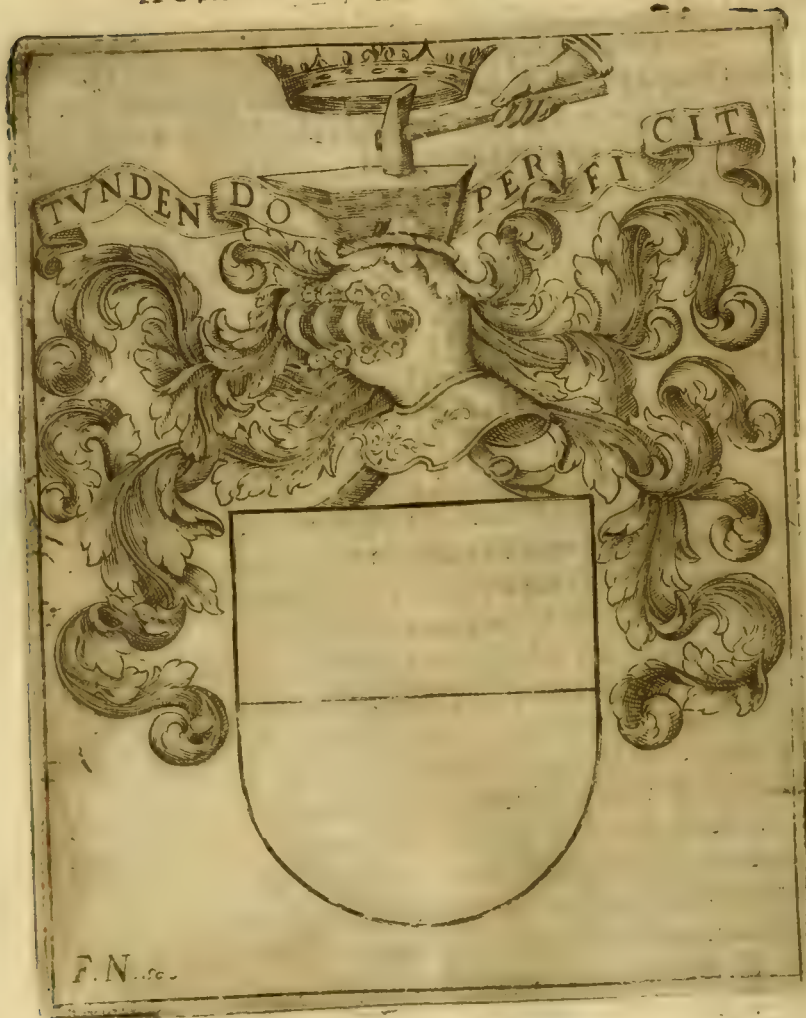 TVNDENDO PERFICIT
F. N. sc.